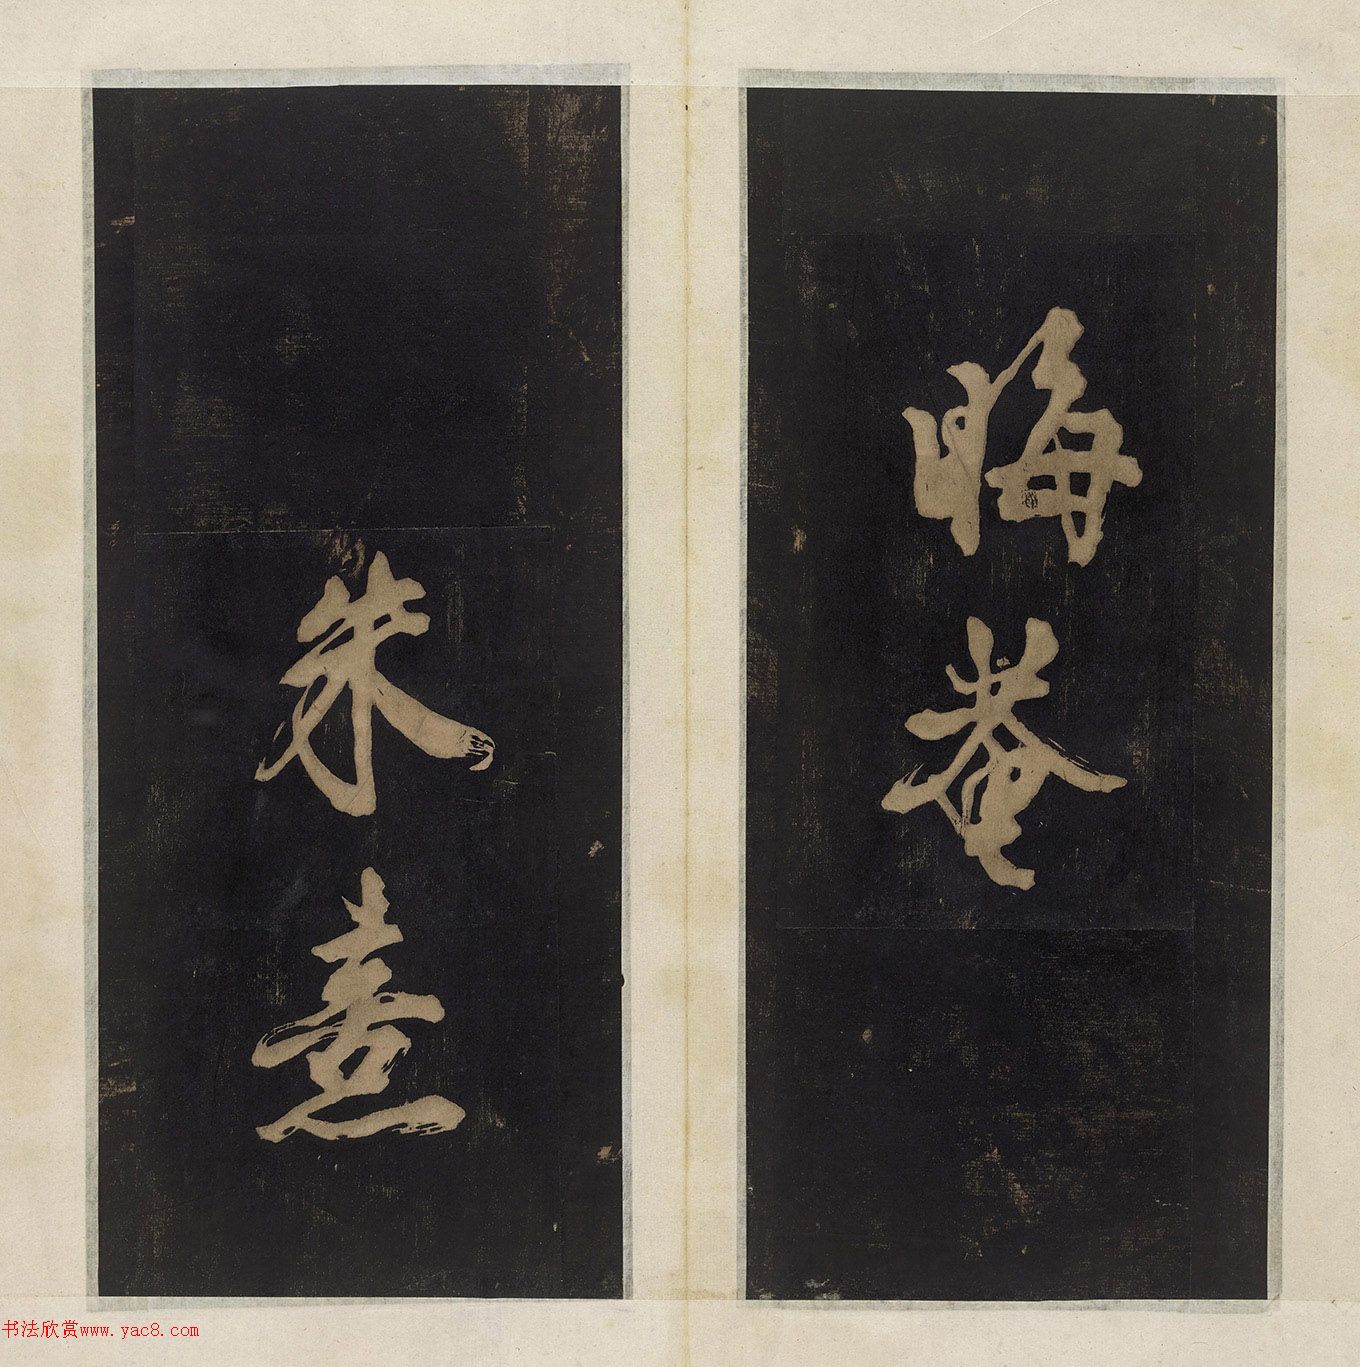 晦菴
朱熹
书法欣赏www.yac8.com